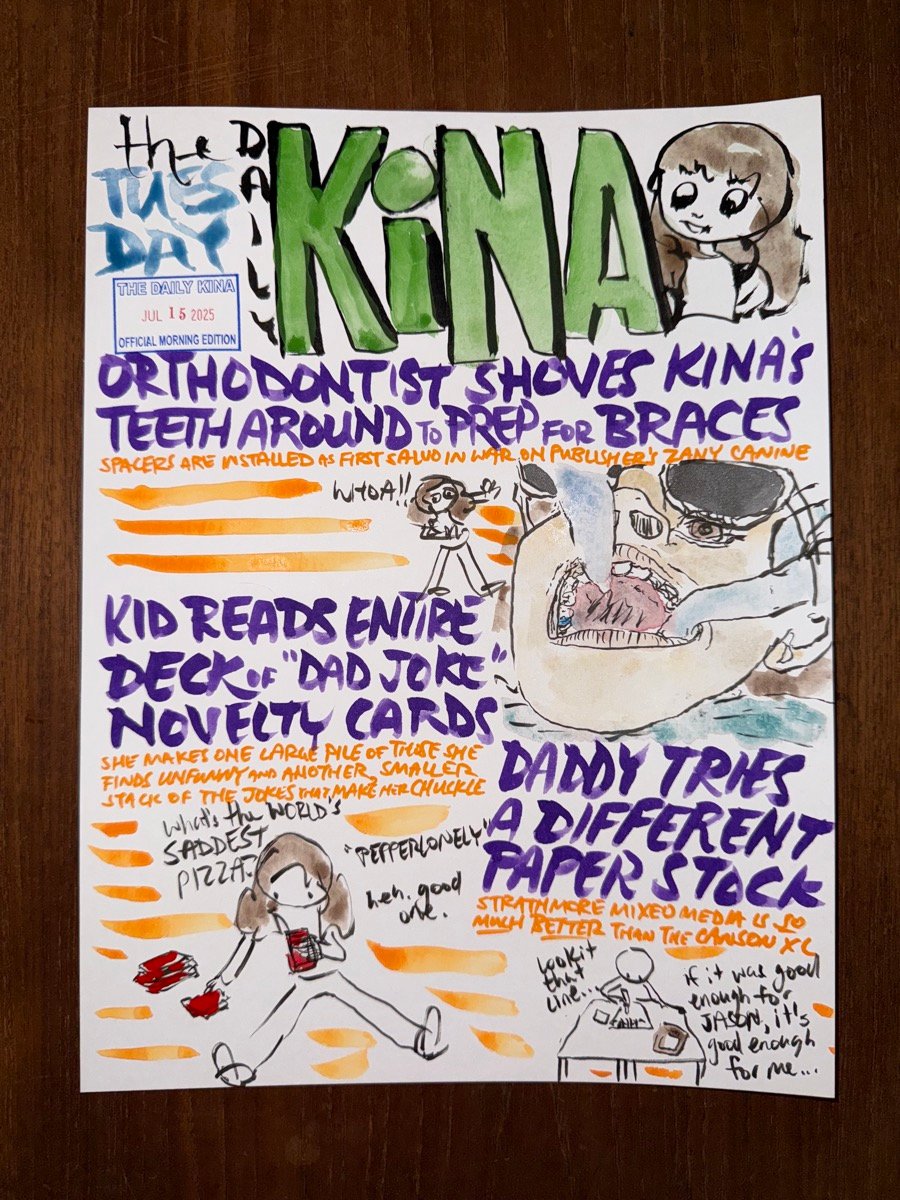 the
TUES
DAY
DAILY
KiNA
THE DAILY KINA
JUL 15 2025
OFFICIAL MORNING EDITION
ORTHODONTIST SHOVES KINA'S
TEETH AROUND TO PREP FOR BRACES
SPACERS ARE INSTALLED AS FIRST SALVO IN WAR ON PUBLISHER'S ZANY CANINE
WHOA!!
KID READS ENTIRE
DECK OF "DAD JOKE"
NOVELTY CARDS
SHE MAKES ONE LARGE PILE OF THOSE SHE
FINDS UNFUNNY AND ANOTHER, SMALLER
STACK OF THE JOKES THAT MAKE HER CHUCKLE
What's the WORLD'S
SADDEST
PIZZA?
"PEPPERLONELY"
heh. good
one.
DADDY TRIES
A DIFFERENT
PAPER STOCK
STRATHMORE MIXED MEDIA IS SO
MUCH BETTER THAN THE CANSON XL
Lookit
that
line...
if it was good
enough for
JASON, it's
good enough
for me...